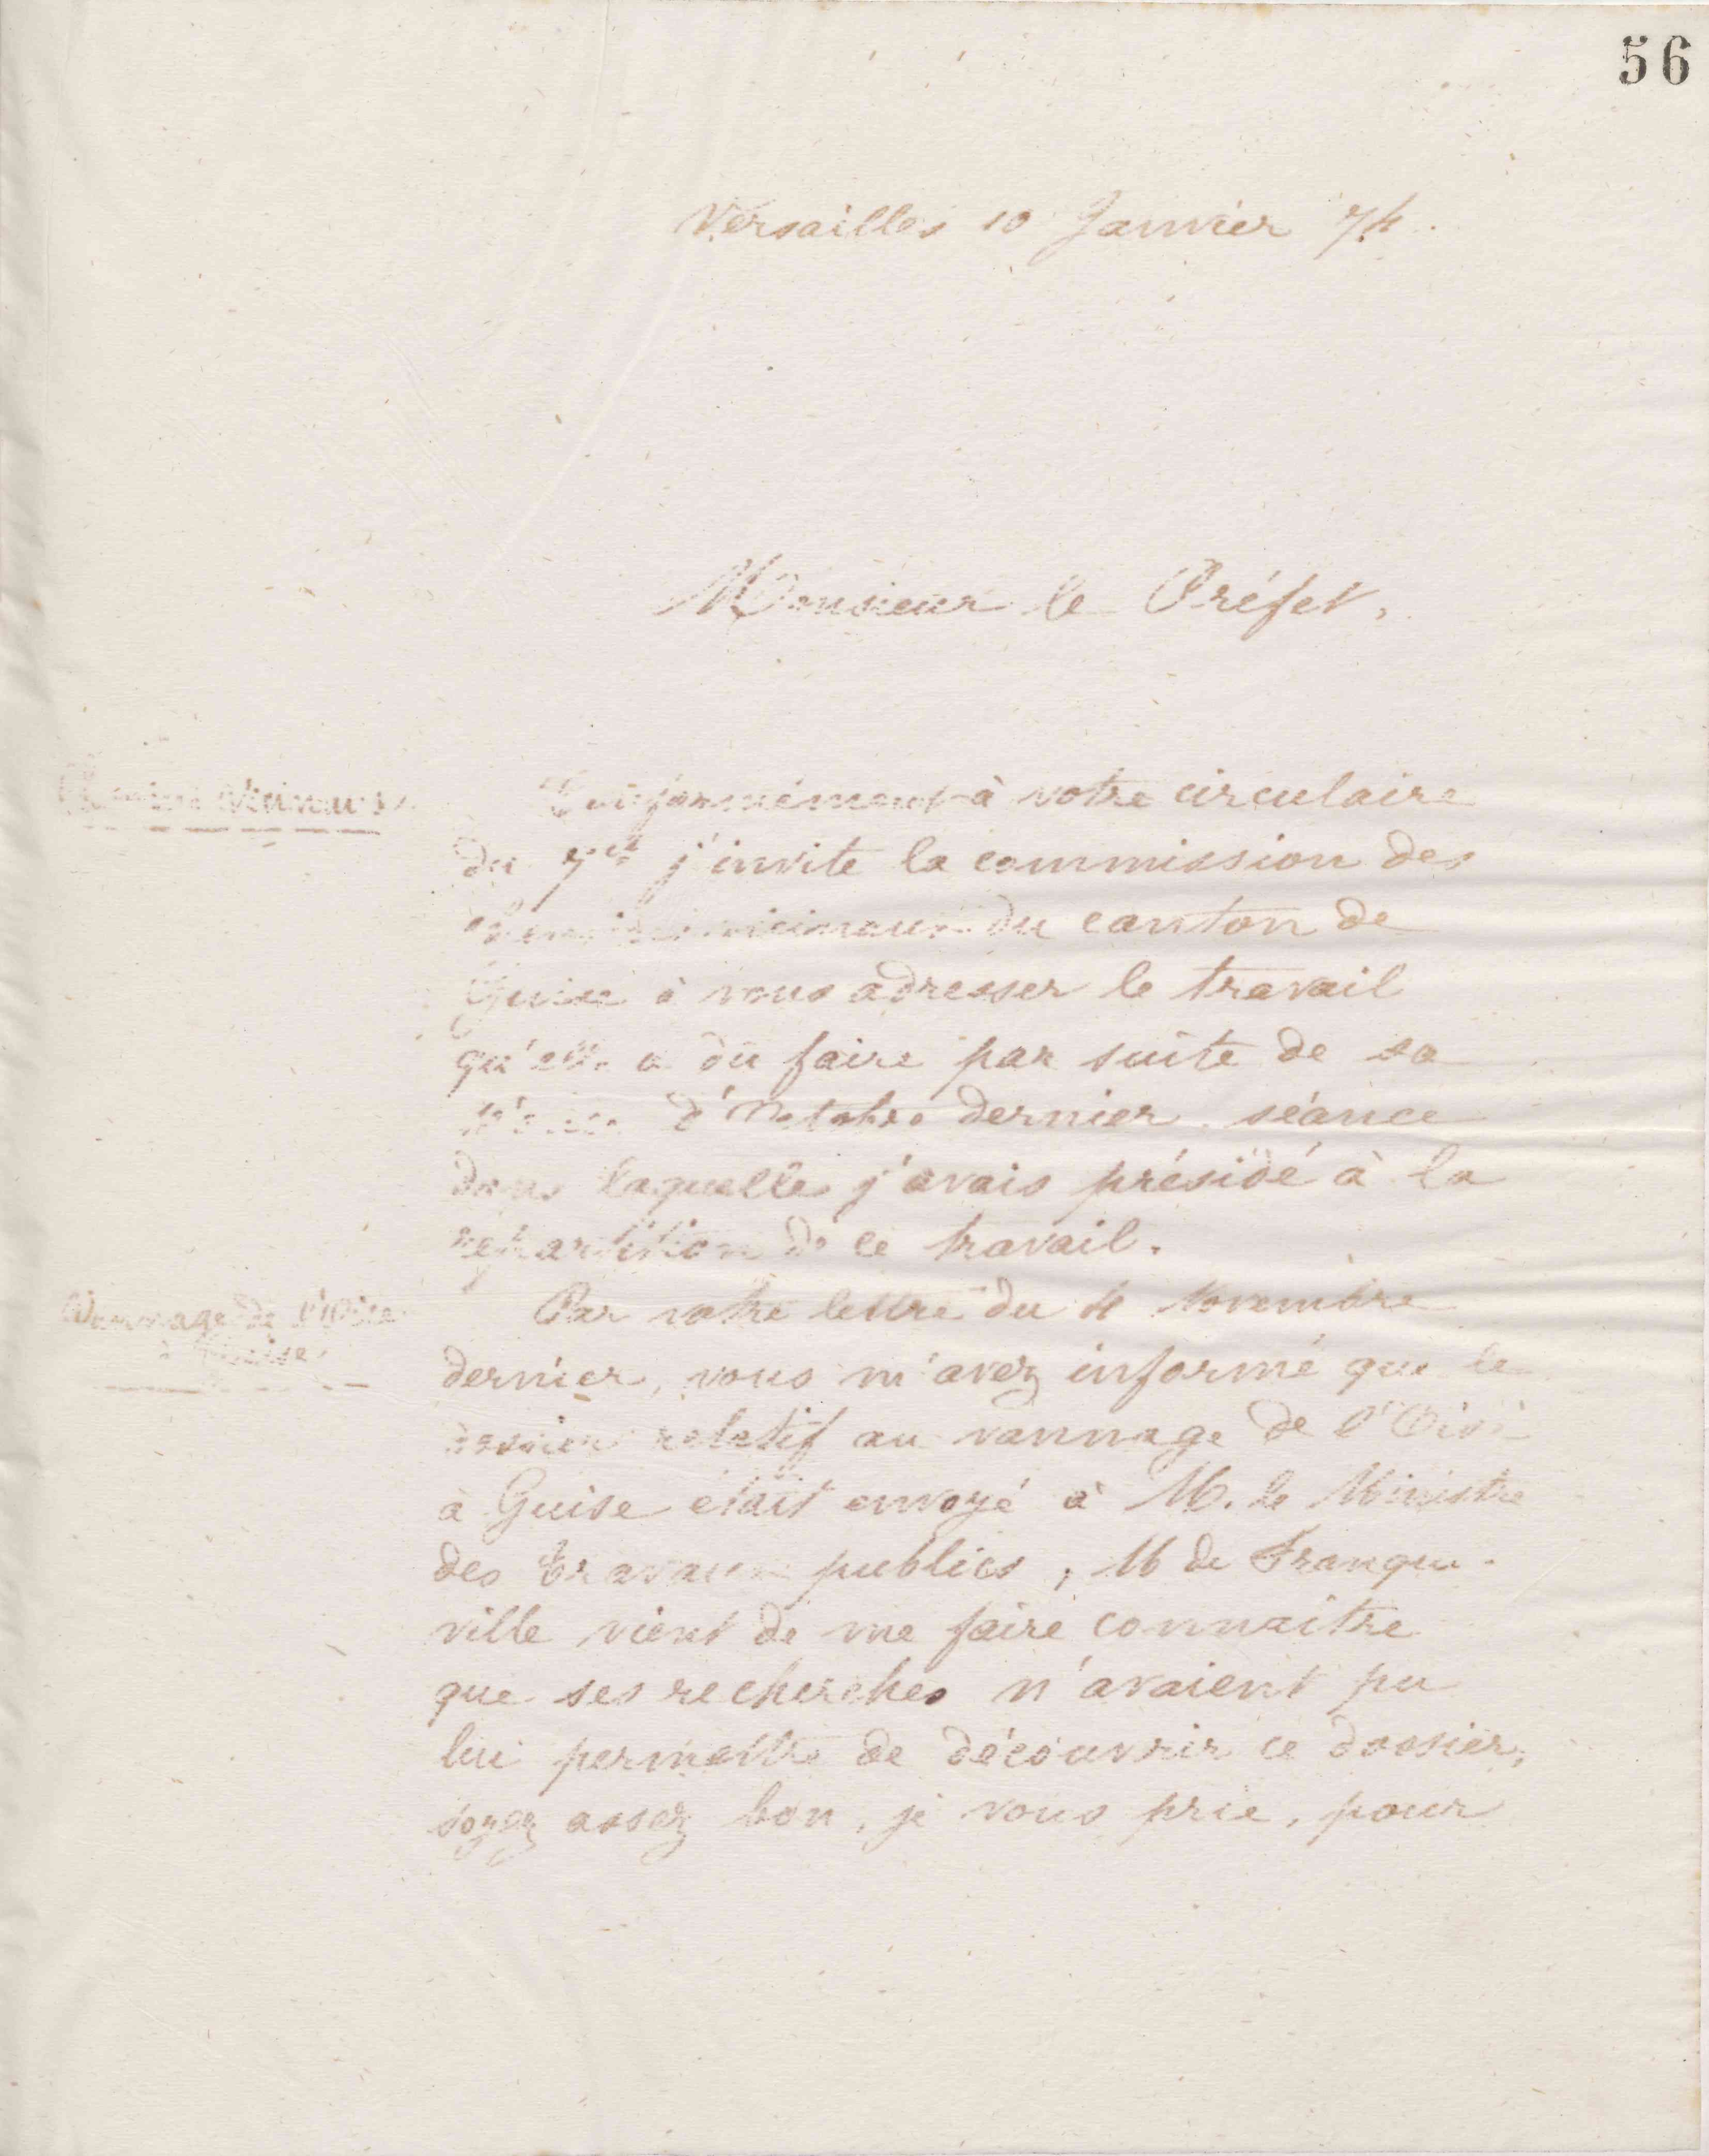 56
Versailles 10 Janvier 74.
Monsieur le Préfet,
Chemins Vicinaux.
Conformément à votre circulaire
du 7 ct j'invite la commission des
chemins vicinaux du canton de
Guise à vous adresser le travail
qu'elle a dû faire par suite de sa
séance d'Octobre dernier, séance
dans laquelle j'avais présidé à la
répartition de ce travail.
Vannage de l'Oise
à Guise.
Par votre lettre du 4 Novembre
dernier, vous m'avez informé que le
dossier relatif au vannage de l'Oise
à Guise était envoyé à M. le Ministre
des Travaux publics, M de Franque-
ville vient de me faire connaître
que ses recherches n'avaient pu
lui permettre de découvrir ce dossier,
soyez assez bon, je vous prie, pour